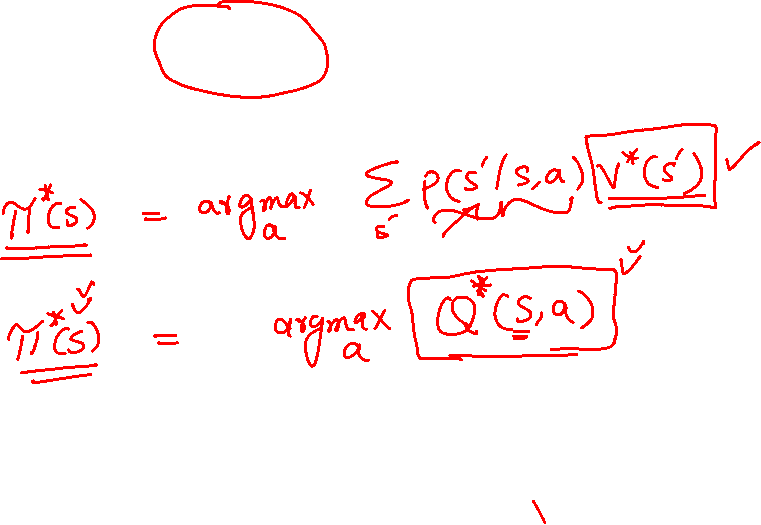 π*(s) = argmax_a Σ_s' P(s'/s,a) V*(s') ✓
π*(s) = argmax_a Q*(s,a)